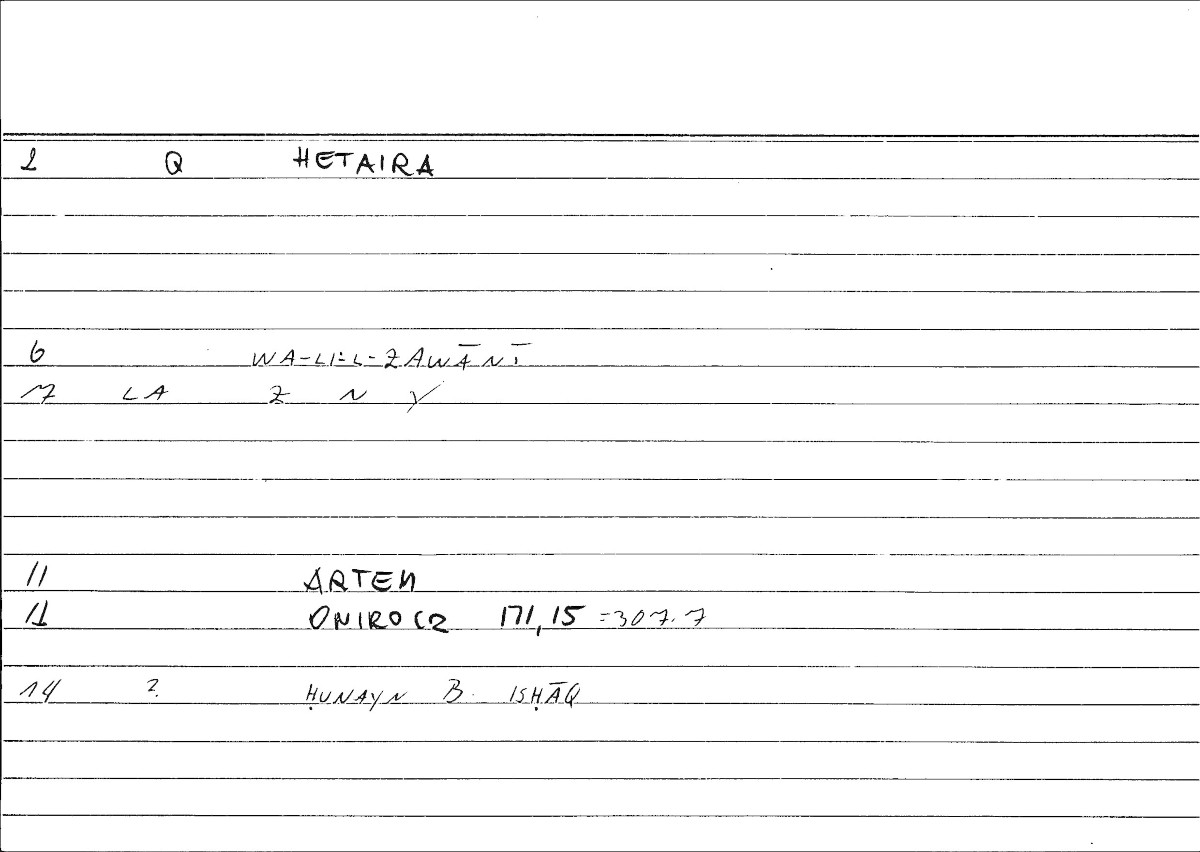 1 Q HETAIRA
6 WA-LI-L-ZAWĀNĪ
7 LA Z N Y
11 ARTEM
12 ONIROCR 171,15 =307.7
14 2. ḤUNAYN B. ISḤĀQ